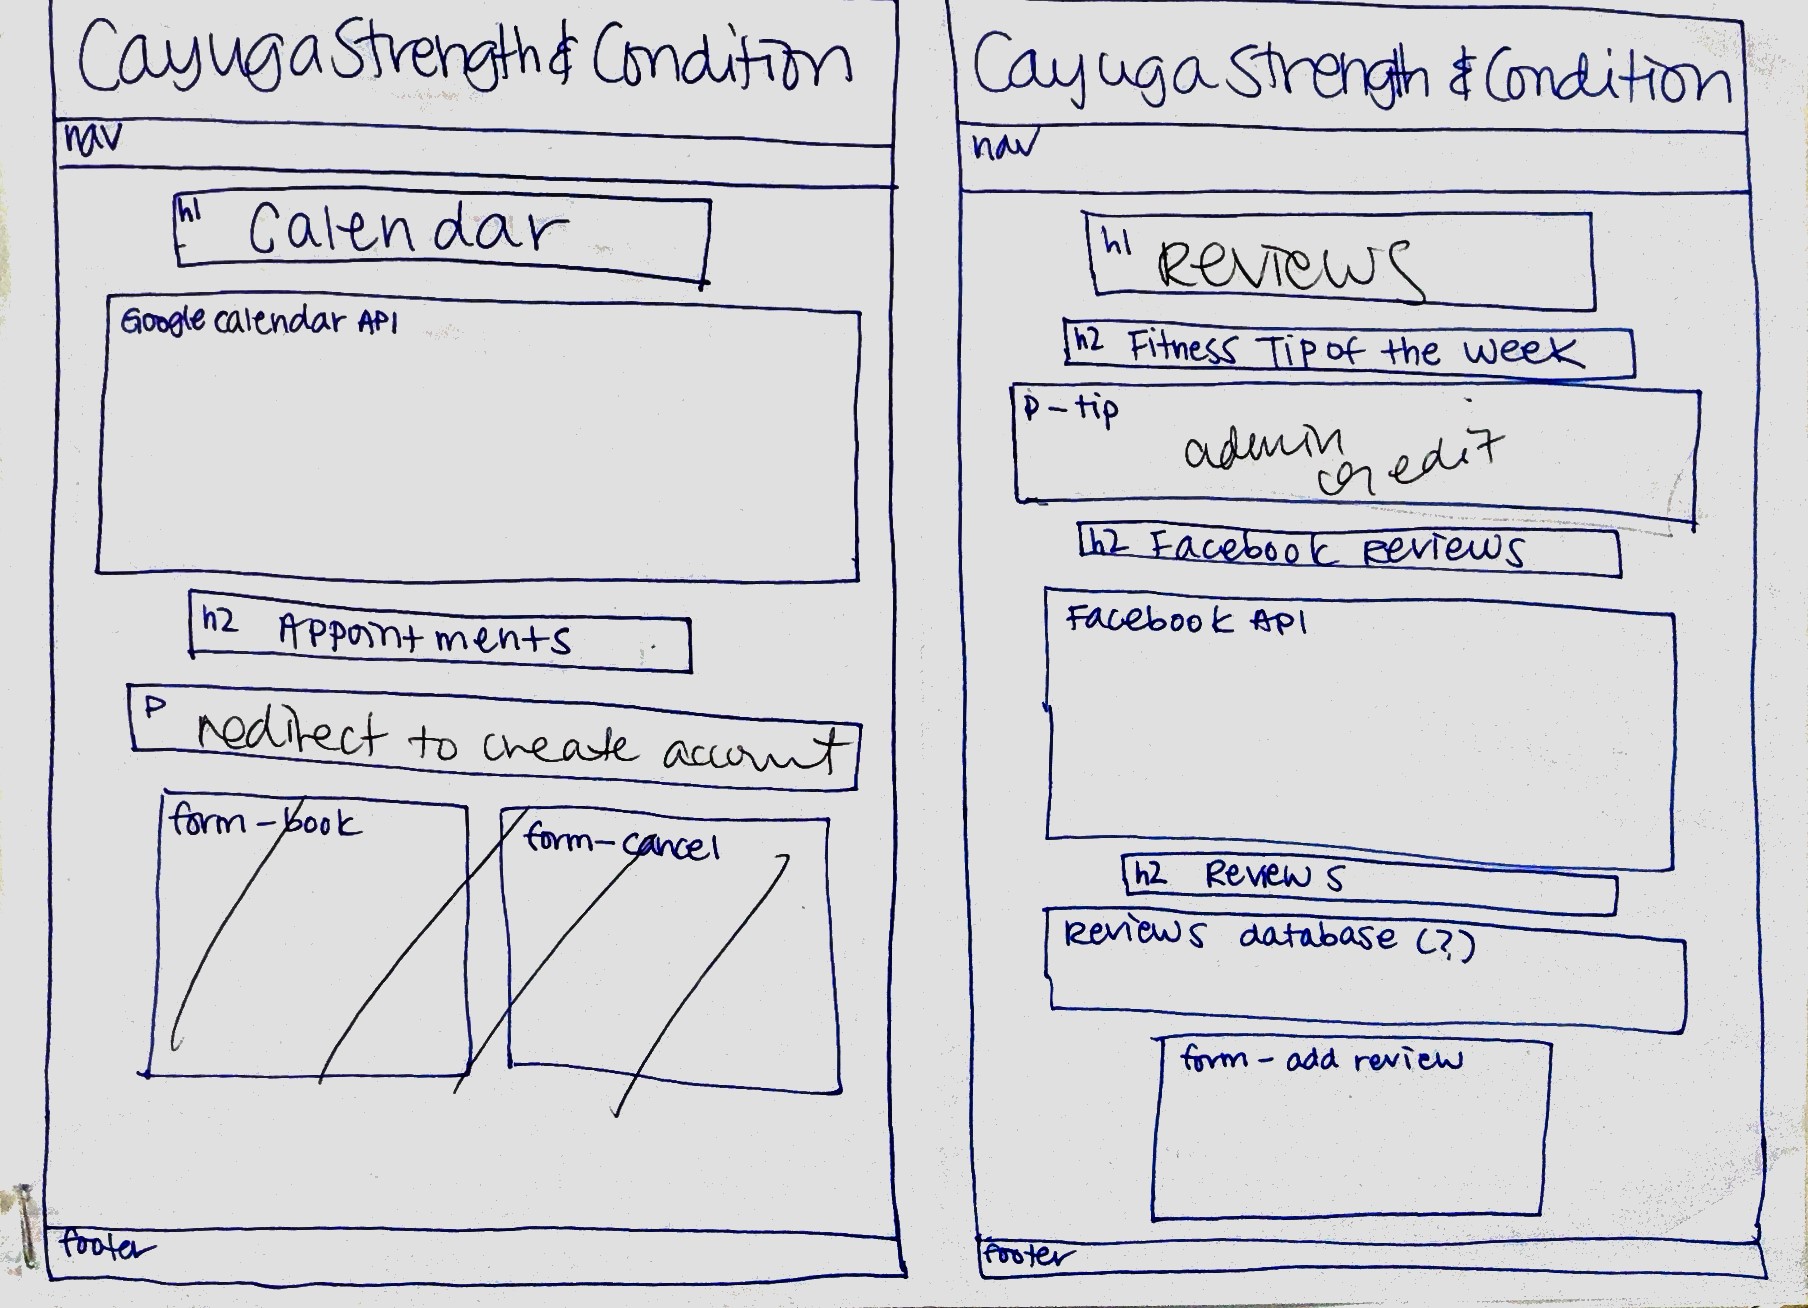 Cayuga Strength & Condition
nav
h1 Calendar
Google calendar API
h2 Appointments
P redirect to create account
form-book
form-cancel
footer
Cayuga Strength & Condition
nav
h1 Reviews
h2 Fitness Tip of the week
P-tip
admin
can edit
h2 Facebook Reviews
Facebook API
h2 Reviews
Reviews database (?)
form - add review
footer